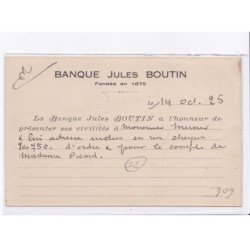 BANQUE JULES BOUTIN
Fondée en 1875
le 14 Oct. 25
La Banque Jules BOUTIN a l'honneur de
présenter ses civilités à Monsieur Mercier
& lui adresse inclus en un chèque
Frs 750. d'ordre & pour le compte de
Madame Picard.